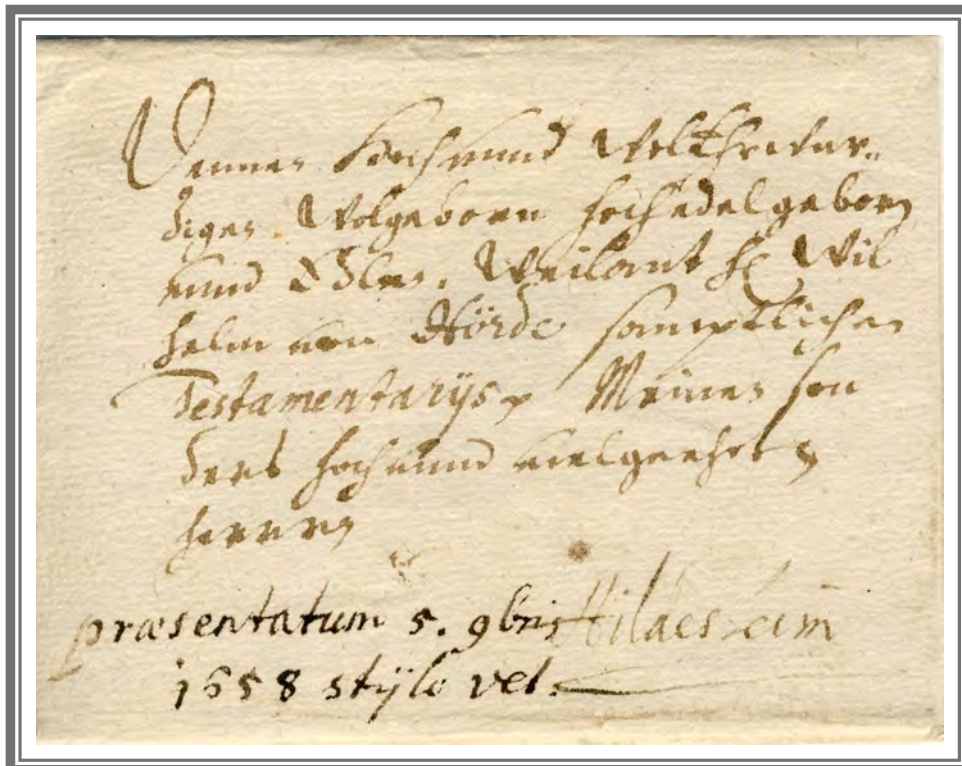 Dennen Hoch unnd WolEhrwur-
digen Wolgeborn hochedelgeborn
unnd Edlen, Weilant H Wil
helm von Hörde sämptlichen
Testamentarijs Meinen son
ders hoch unnd vielgeehrten
herren
præsentatum 5. 9bris Hildesheim
1658 stylo vet.